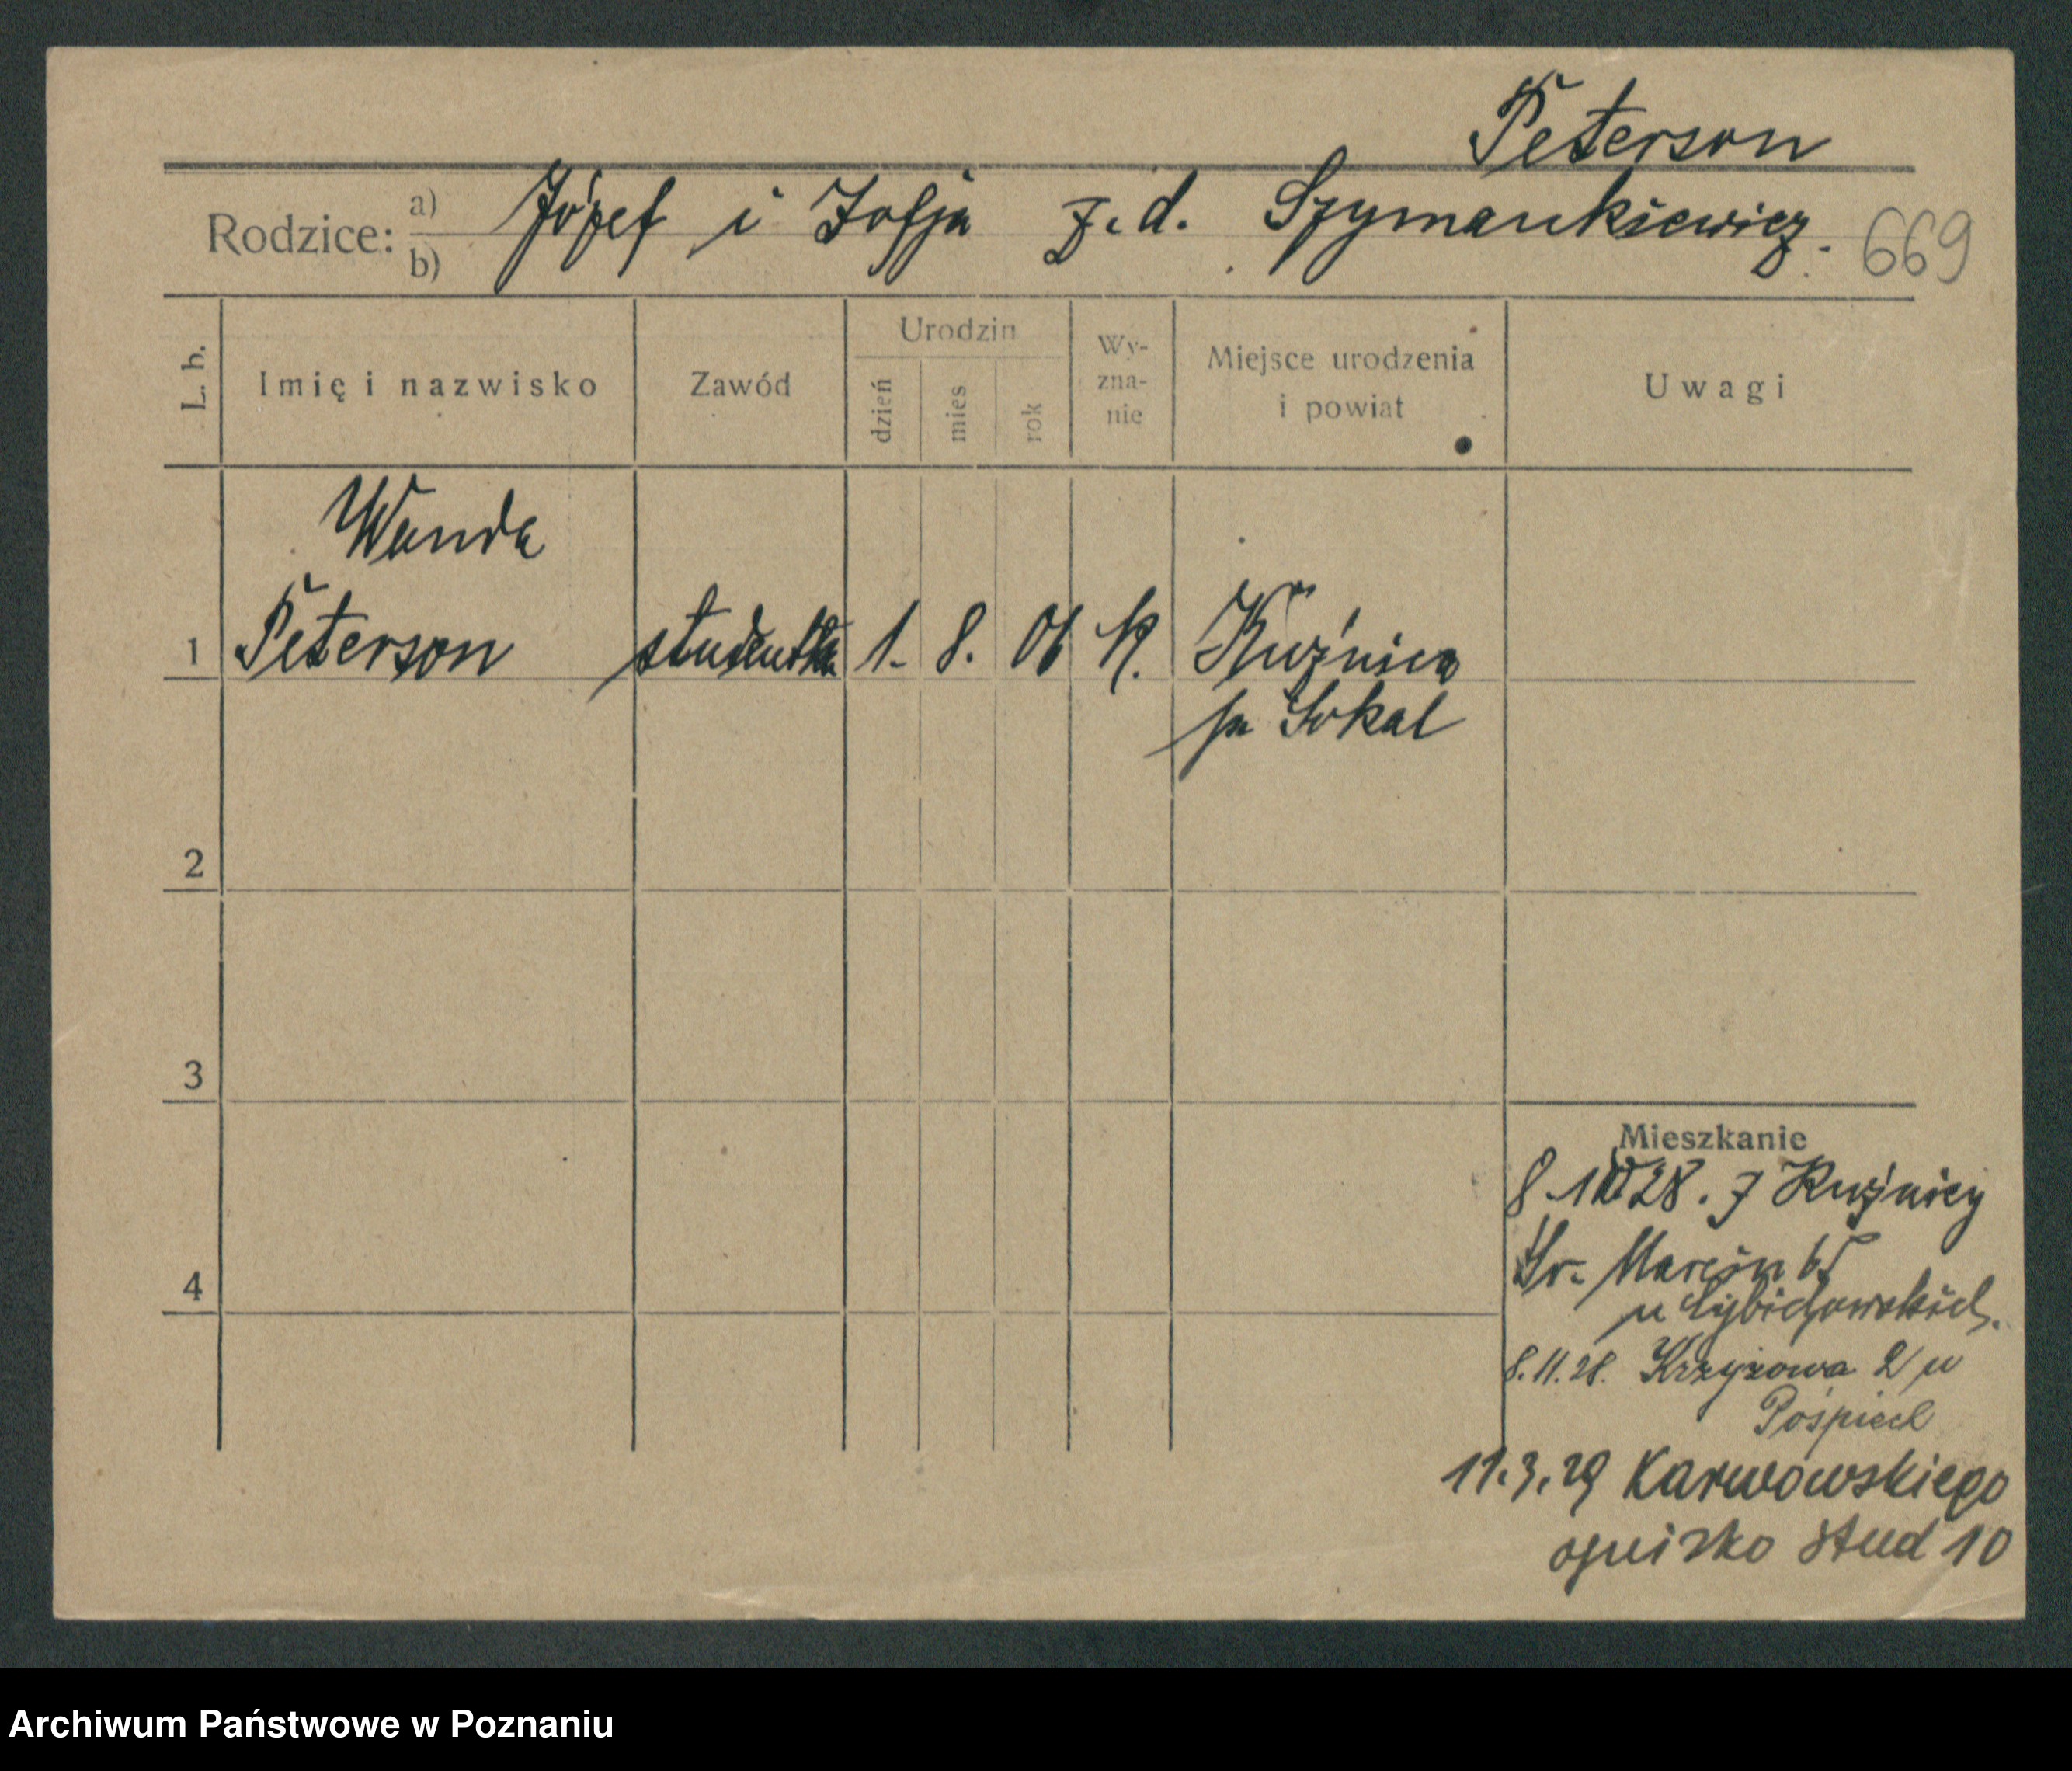 Peterson
Rodzice: a) b) Józef i Zofja z. d. Szymankiewicz. 669
L. b. Imię i nazwisko Zawód Urodzin dzień mies rok Wy-zna-nie Miejsce urodzenia i powiat Uwagi
Wanda
1 Peterson studentka 1. 8. 06 K. Kuźnica
pa Sokal
2
3
Mieszkanie
8. 10 28. z Kuźnicy
4 Św. Marcin 65
u
8.11.28. Krzyżowa 2 u
Pośpiech
11.3.29 Karwowskiego
ognisko stud 10
Archiwum Państwowe w Poznaniu